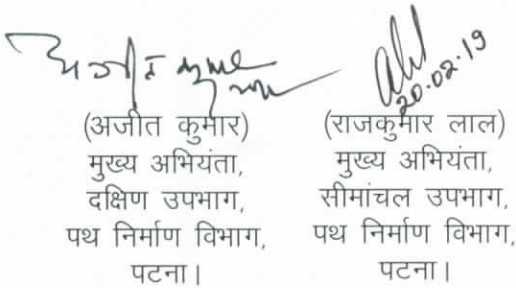 20.02.19
(अजीत कुमार)
मुख्य अभियंता,
दक्षिण उपभाग,
पथ निर्माण विभाग,
पटना।
(राजकुमार लाल)
मुख्य अभियंता,
सीमांचल उपभाग,
पथ निर्माण विभाग,
पटना।